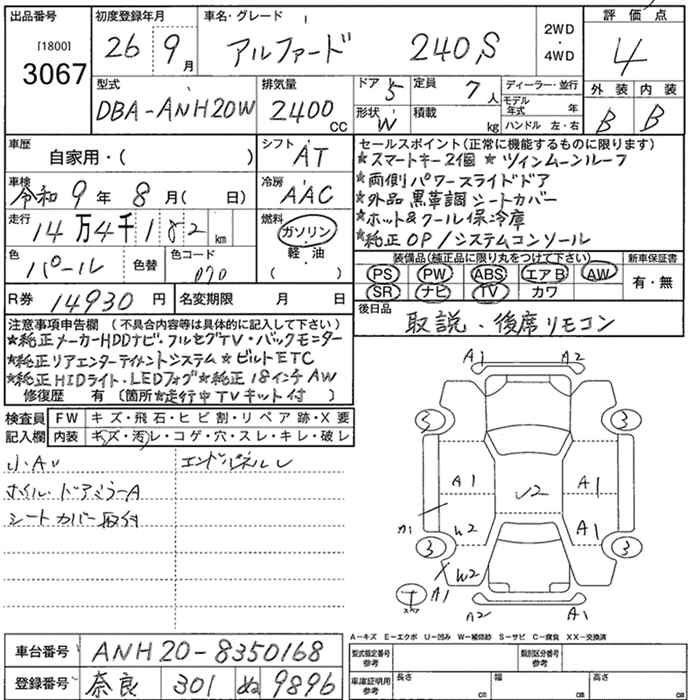 出品番号 初度登録年月 車名・グレード 2WD・4WD 評価点
[1800]
3067 26 9月 アルファード 240,S 4
型式 排気量 ドア 5 定員 7人 ディーラー・並行 外装 内装
DBA-ANH20W 2400CC 形状 W 積載 kg モデル年式 年 B B
ハンドル 左・右
車歴 シフト セールスポイント(正常に機能するものに限ります)
自家用・( ) AT ★スマートキー2個 ★ツインムーンルーフ
車検 冷房 ★両側パワースライドドア
令和9年8月( 日) AAC ★外品黒革調シートカバー
走行 燃料 ★ホット&クール保冷庫
14万4千182km ガソリン ★純正OP/システムコンソール
色 色替 色コード 軽・油 装備品(純正品に限り丸をつけて下さい) 新車保証書
パール 070 ( ) PS PW ABS エアB AW 有・無
SR ナビ TV カワ
R券 14930円 名変期限 月 日 後日品
取説・後席リモコン
注意事項申告欄 (不具合内容等は具体的に記入して下さい)
★純正メーカーHDDナビ・フルセグTV・バックモニター
★純正リアエンターテイメントシステム★ビルトETC
★純正HIDライト・LEDフォグ★純正18インチAW
修復歴 有 (箇所★走行中TVキット付)
検査員記入欄 FW キズ・飛石・ヒビ割・リペア跡・X要
内装 キズ・汚レ・コゲ・穴・スレ・キレ・破レ
小・AU エンドパネルU
ホイル・ドアミラーA
シートカバー取付
A1 A2
5 3
A1 U2 A1
A1 W2 A1
3 3
W2
T スペア A1 A2 A1
A−キズ E−エクボ U−凹み W−補修跡 S−サビ C−腐食 XX−交換済
車台番号 ANH20-8350168 型式指定番号 参考 類別区分番号 参考
登録番号 奈良 301 ぬ 9896 車庫証明用 参考 長さ cm 幅 cm 高さ cm